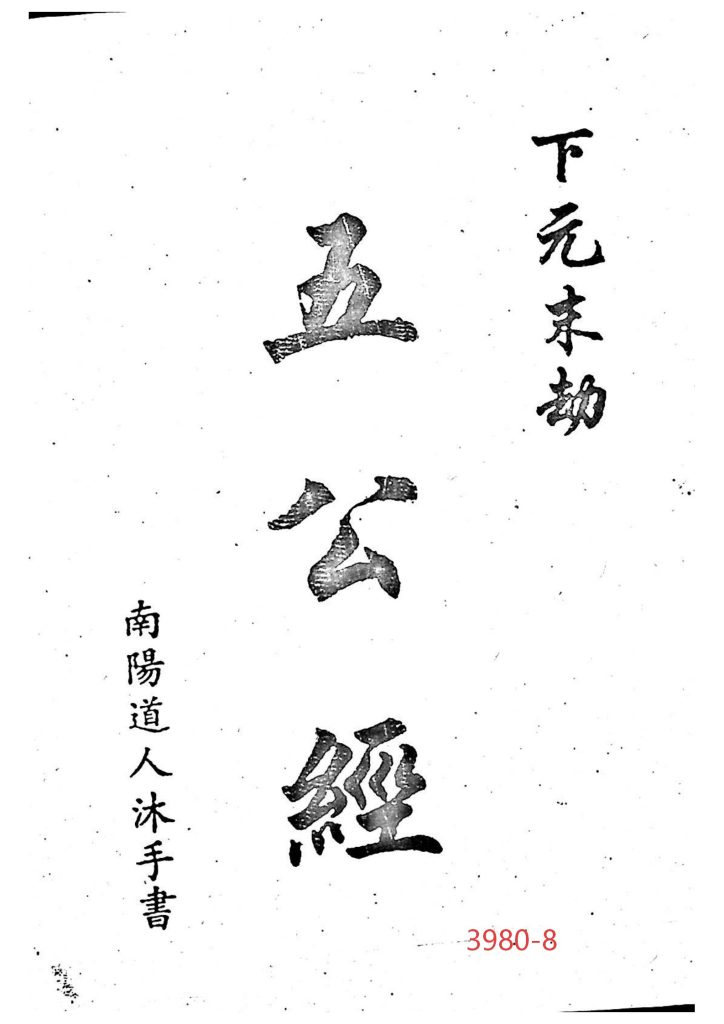 下元末劫
五公經
南陽道人沐手書
3980-8